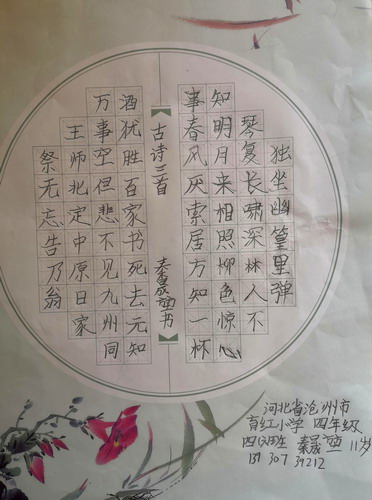 独坐幽篁里弹
琴复长啸深林人不
知明月来相照柳色惊心
事春风厌索居方知一杯
古诗三首
秦晟 书
酒犹胜百家书死去元知
万事空但悲不见九州同
王师北定中原日家
祭无忘告乃翁
河北省沧州市
育红小学 四年级
秦晟 11岁
131 307 39212